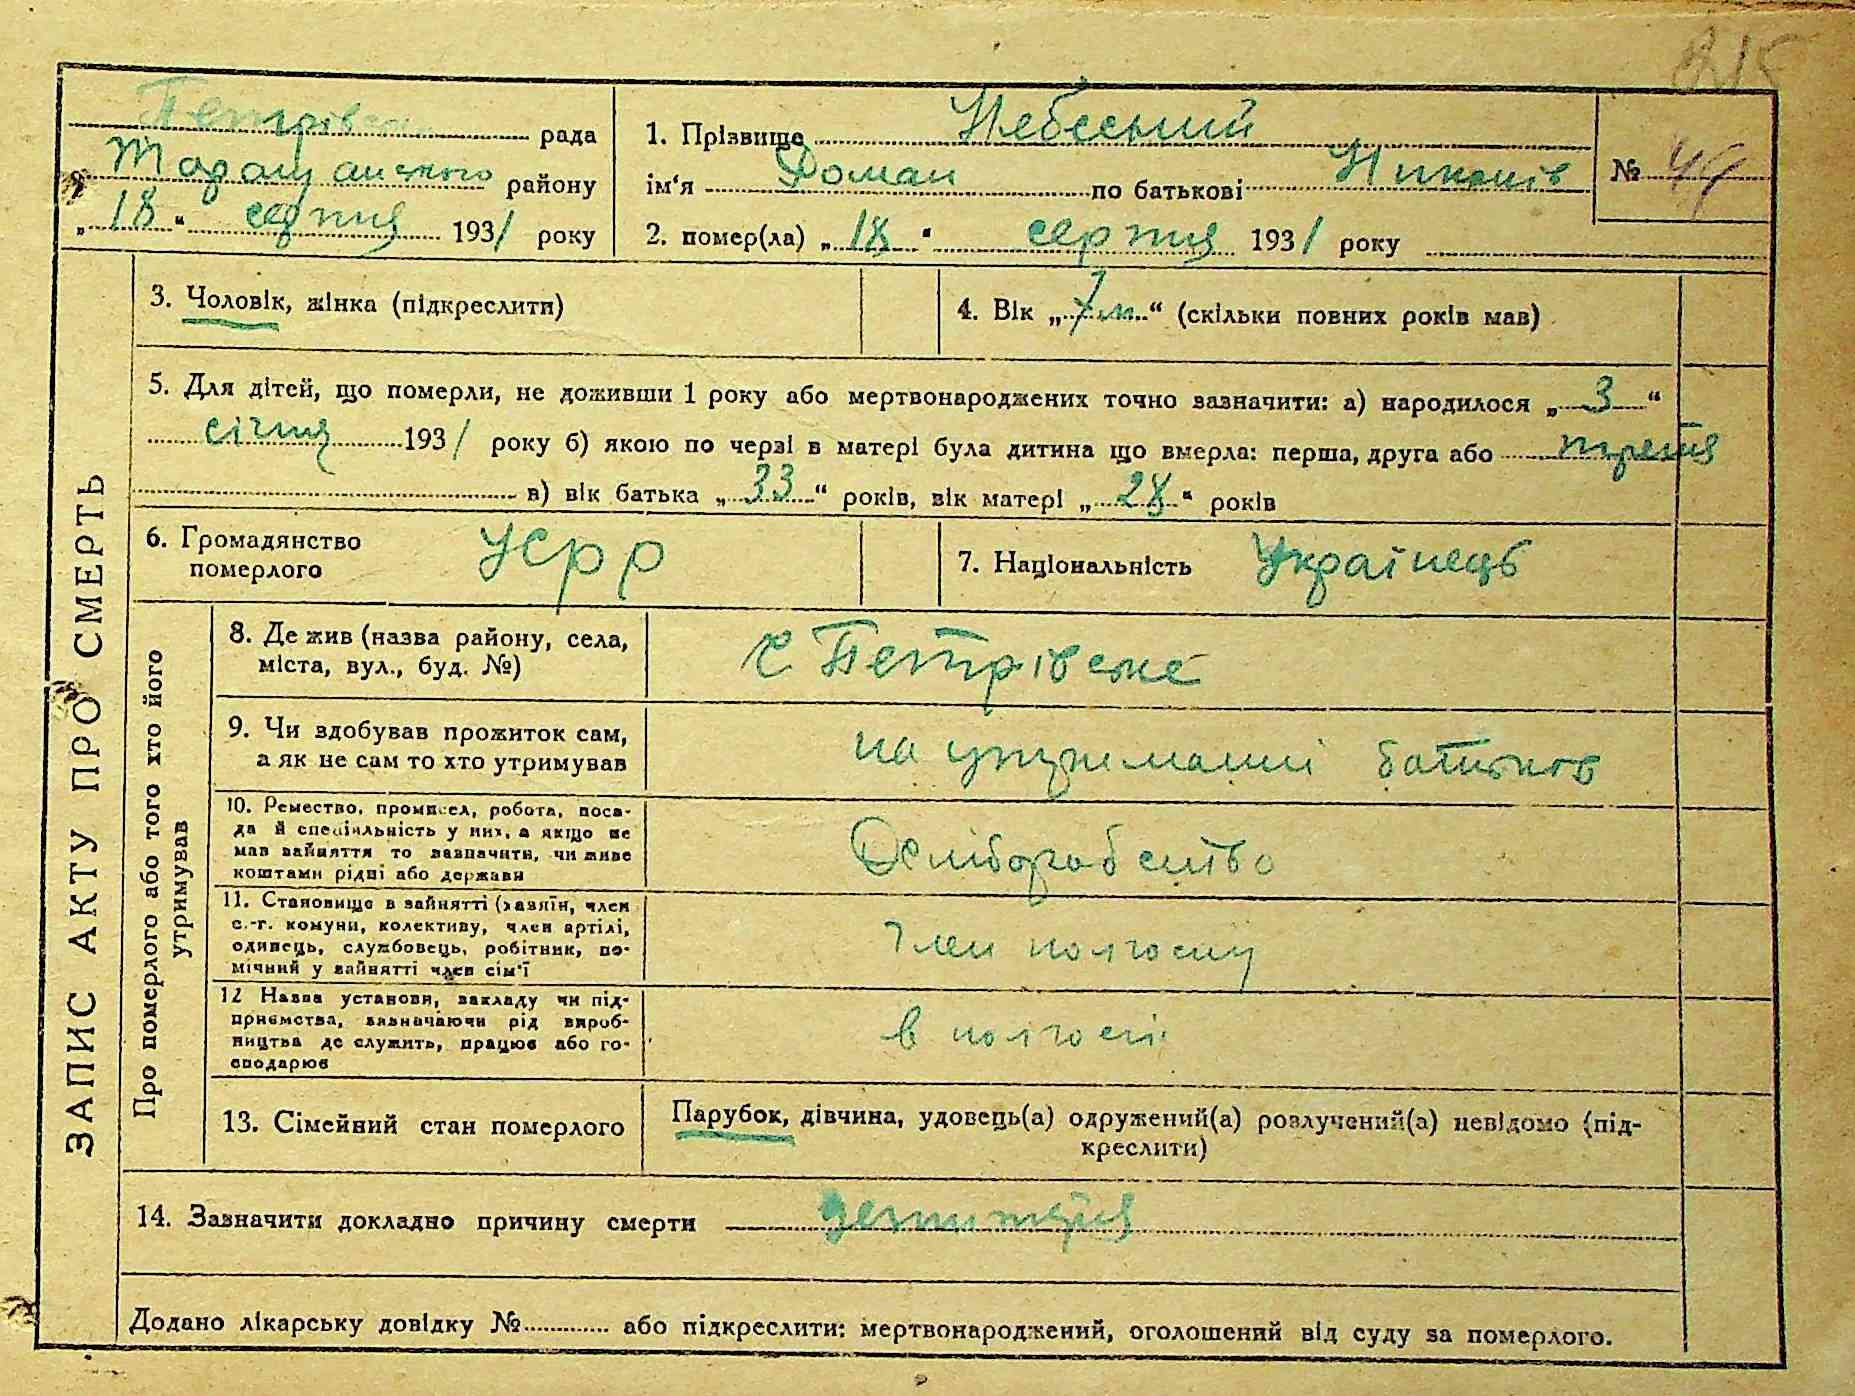 215
Петрівська рада
Таращанского району
„18" серпня 1931 року
1. Прізвище Небесний
ім'я Роман по батькові Никонів
№ 44
2. помер(ла) „18" серпня 1931 року
3. Чоловік, жінка (підкреслити)
4. Вік „7 м" (скільки повних років мав)
5. Для дітей, що померли, не доживши 1 року або мертвонароджених точно зазначити: а) народилося „3"
січня 1931 року б) якою по черзі в матері була дитина що вмерла: перша, друга або третя
в) вік батька „33" років, вік матері „28" років
6. Громадянство
померлого
УСРР
7. Національність Українець
ЗАПИС АКТУ ПРО СМЕРТЬ
Про померлого або того хто його
утримував
8. Де жив (назва району, села,
міста, вул., буд. №)
с Петрівське
9. Чи здобував прожиток сам,
а як не сам то хто утримував
на утриманні батьків
10. Ремество, промисел, робота, поса-
да й спеціяльність у них, а якщо не
мав зайняття то зазначити, чи живе
коштами рідні або держави
Хліборобство
11. Становище в зайнятті (хазяїн, член
с.-г. комуни, колективу, член артілі,
одинець, службовець, робітник, по-
мічний у зайнятті член сім'ї
член колгоспу
12 Назва установи, закладу чи під-
приємства, зазначаючи рід вироб-
ництва де служить, працює або го-
сподарює
в колгоспі
13. Сімейний стан померлого
Парубок, дівчина, удовець(а) одружений(а) розлучений(а) невідомо (під-
креслити)
14. Зазначити докладно причину смерти
Додано лікарську довідку № або підкреслити: мертвонароджений, оголошений від суду за померлого.